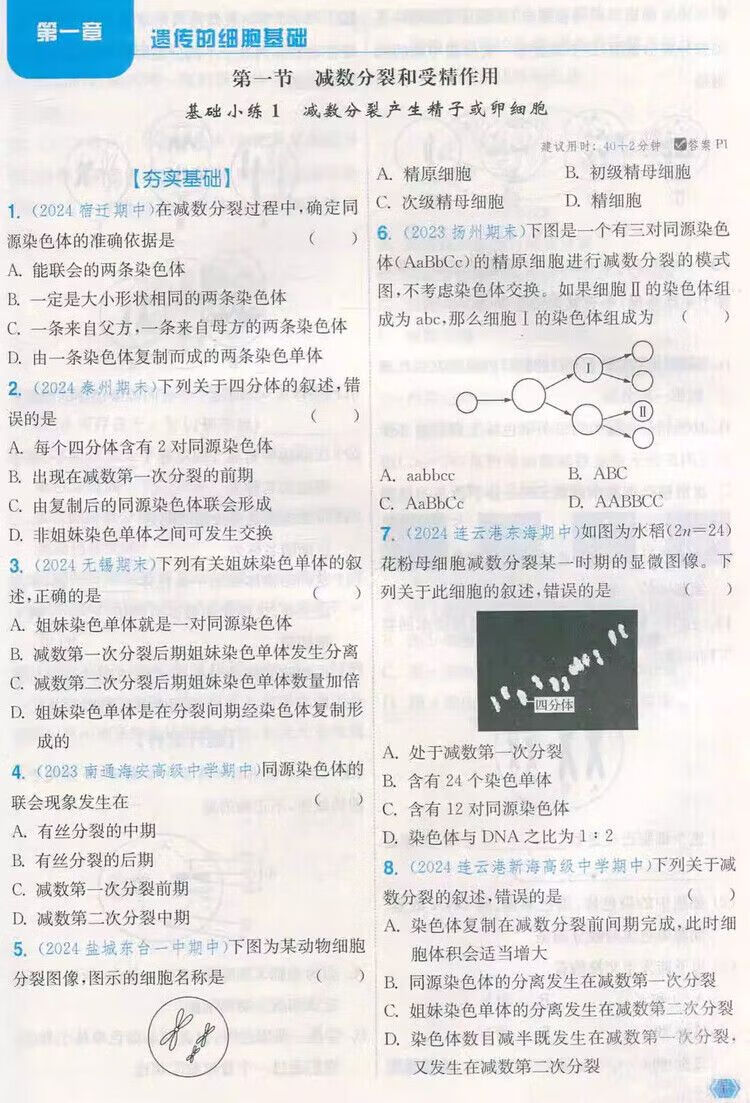 第一章
遗传的细胞基础
第一节 减数分裂和受精作用
基础小练1 减数分裂产生精子或卵细胞
建议用时：40+2分钟 答案 P1
【夯实基础】
1. (2024宿迁期中)在减数分裂过程中,确定同
源染色体的准确依据是 ( )
A. 能联会的两条染色体
B. 一定是大小形状相同的两条染色体
C. 一条来自父方,一条来自母方的两条染色体
D. 由一条染色体复制而成的两条染色单体
2. (2024泰州期末)下列关于四分体的叙述,错
误的是 ( )
A. 每个四分体含有2对同源染色体
B. 出现在减数第一次分裂的前期
C. 由复制后的同源染色体联会形成
D. 非姐妹染色单体之间可发生交换
3. (2024无锡期末)下列有关姐妹染色单体的叙
述,正确的是 ( )
A. 姐妹染色单体就是一对同源染色体
B. 减数第一次分裂后期姐妹染色单体发生分离
C. 减数第二次分裂后期姐妹染色单体数量加倍
D. 姐妹染色单体是在分裂间期经染色体复制形
成的
4. (2023南通海安高级中学期中)同源染色体的
联会现象发生在 ( )
A. 有丝分裂的中期
B. 有丝分裂的后期
C. 减数第一次分裂前期
D. 减数第二次分裂中期
5. (2024盐城东台一中期中)下图为某动物细胞
分裂图像,图示的细胞名称是 ( )
A. 精原细胞 B. 初级精母细胞
C. 次级精母细胞 D. 精细胞
6. (2023扬州期末)下图是一个有三对同源染色
体(AaBbCc)的精原细胞进行减数分裂的模式
图,不考虑染色体交换。如果细胞Ⅱ的染色体组
成为abc,那么细胞Ⅰ的染色体组成为 ( )
Ⅰ
Ⅱ
A. aabbcc B. ABC
C. AaBbCc D. AABBCC
7. (2024连云港东海期中)如图为水稻(2n=24)
花粉母细胞减数分裂某一时期的显微图像。下
列关于此细胞的叙述,错误的是 ( )
四分体
A. 处于减数第一次分裂
B. 含有24个染色单体
C. 含有12对同源染色体
D. 染色体与DNA之比为1∶2
8. (2024连云港新海高级中学期中)下列关于减
数分裂的叙述,错误的是 ( )
A. 染色体复制在减数分裂前间期完成,此时细
胞体积会适当增大
B. 同源染色体的分离发生在减数第一次分裂
C. 姐妹染色单体的分离发生在减数第二次分裂
D. 染色体数目减半既发生在减数第一次分裂,
又发生在减数第二次分裂
1